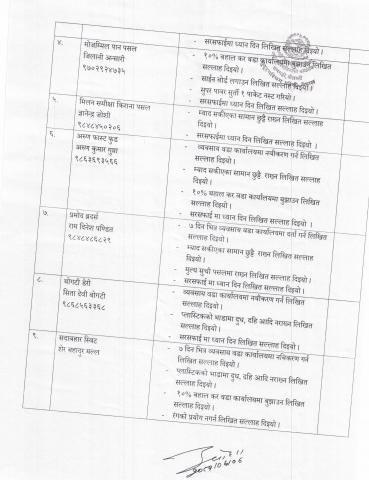 - सरसफाईमा ध्यान दिन लिखित सल्लाह दिइयो ।
४. मोजम्मिल पान पसल
जिलानी अन्सारी
९७०२९२४७३५
- १०% बहाल कर वडा कार्यालयमा बुझाउन लिखित
सल्लाह दिइयो ।
- साईन बोर्ड लगाउन लिखित सल्लाह दिइयो ।
- सुपर पावर सुर्ती १ पाकेट नस्ट गरियो ।
- सरसफाईमा ध्यान दिन लिखित सल्लाह दिइयो ।
५. मिलन समीक्षा किराना पसल
ज्ञानेन्द्र जोशी
९८४८४५०२०६
- म्याद सकीएका सामान छुट्टै राख्न लिखित सल्लाह
दिइयो ।
- सरसफाईमा ध्यान दिन लिखित सल्लाह दिइयो ।
६. अरुण फास्ट फुड
अरुण कुमार गुप्ता
९८६३६९३५६६
- व्यवसाय वडा कार्यालयमा नवीकरण गर्न लिखित
सल्लाह दिइयो ।
- म्याद सकीएका सामान छुट्टै राख्न लिखित सल्लाह
दिइयो ।
- १०% बहाल कर वडा कार्यालयमा बुझाउन लिखित
सल्लाह दिइयो ।
- सरसफाई मा ध्यान दिन लिखित सल्लाह दिइयो ।
७. प्रमोद ब्रदर्स
राम दिनेश पण्डित
९८४८४८६८२९
- ७ दिन भित्र व्यवसाय वडा कार्यालयमा दर्ता गर्न लिखित
सल्लाह दिइयो ।
- म्याद सकीएका सामान छुट्टै राख्न लिखित सल्लाह
दिइयो ।
- मुल्य सुची पसलमा राख्न लिखित सल्लाह दिइयो ।
- सरसफाई मा ध्यान दिन लिखित सल्लाह दिइयो ।
८. बोगटी डेरी
सिता देवी बोगटी
९८६८५६३३६८
- व्यवसाय वडा कार्यालयमा नवीकरण गर्न लिखित
सल्लाह दिइयो ।
- प्लास्टिकको भाडामा दुध, दहि आदि नराख्न लिखित
सल्लाह दिइयो ।
- सरसफाई मा ध्यान दिन लिखित सल्लाह दिइयो ।
९. सदाबहार स्विट
शेर बहादुर मल्ल
- ७ दिन भित्र व्यवसाय वडा कार्यालयमा नविकरण गर्न
लिखित सल्लाह दिइयो ।
- प्लास्टिकको भाडामा दुध, दहि आदि नराख्न लिखित
सल्लाह दिइयो ।
- १०% बहाल कर वडा कार्यालयमा बुझाउन लिखित
सल्लाह दिइयो ।
- रंगको प्रयोग नगर्न लिखित सल्लाह दिइयो ।